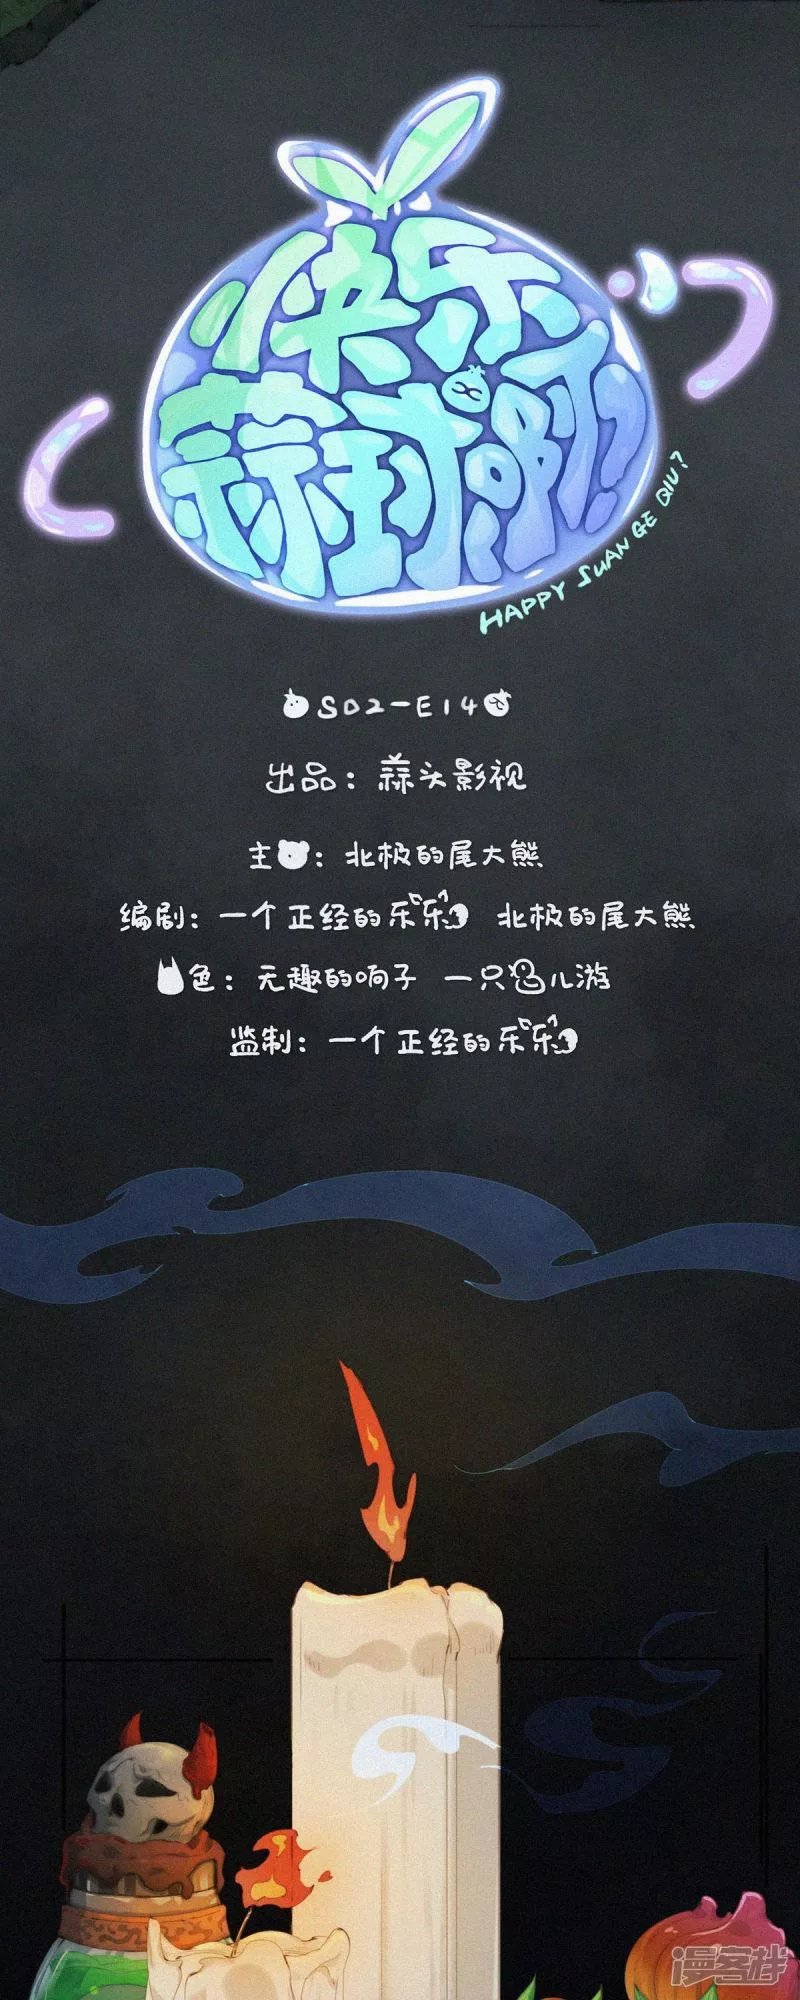 快乐
蒜球啊?!
HAPPY SUAN GE QIU?
S02-E14
出品：蒜头影视
主：北极的尾大熊
编剧：一个正经的乐乐 北极的尾大熊
色：无趣的响子 一只鸟儿游
监制：一个正经的乐乐
漫客栈